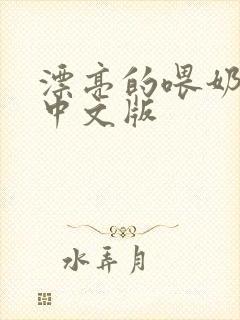 漂亮的喂奶
中文版
水弄月